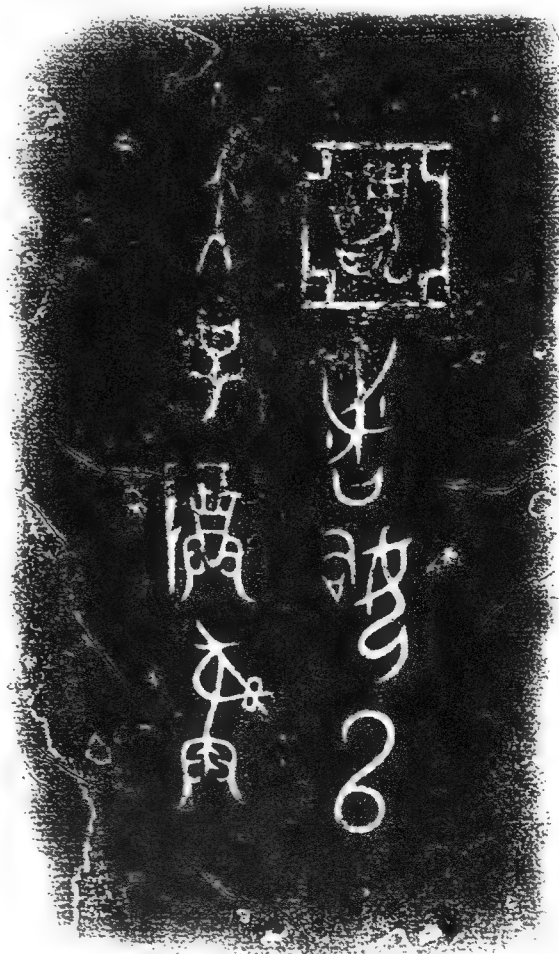 亞醜者姛以
大子尊彝